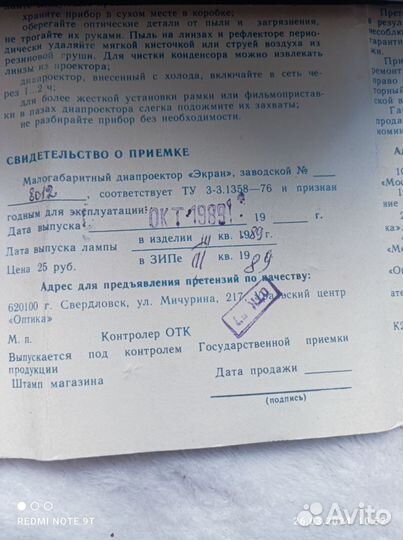 храните прибор в сухом месте в коробке;
оберегайте оптические детали от пыли и загрязнения,
не трогайте их руками. Пыль на линзах и рефлекторе перио-
дически удаляйте мягкой кисточкой или струей воздуха из
резиновой груши. Для чистки конденсора можно извлекать
линзы из проектора;
диапроектор, внесенный с холода, включайте в сеть че-
рез 1...2 ч;
для более жесткой установки рамки или фильмопристав-
ки в пазах диапроектора слегка подожмите их захваты;
не разбирайте прибор без необходимости.
СВИДЕТЕЛЬСТВО О ПРИЕМКЕ
Малогабаритный диапроектор «Экран», заводской №
8012 соответствует ТУ 3-3.1358—76 и признан
годным для эксплуатации.
Дата выпуска ОКТ 1989 19 г.
Дата выпуска лампы в изделии IV кв. 1989 г.
Цена 25 руб. в ЗИПе III кв. 19 89
Адрес для предъявления претензий по качеству:
620100 г. Свердловск, ул. Мичурина, 217, Уральский центр
«Оптика»
М. п. Контролер ОТК
Выпускается под контролем Государственной приемки
продукции
Штамп магазина Дата продажи
(подпись)
REDMI NOTE 9T
Avito